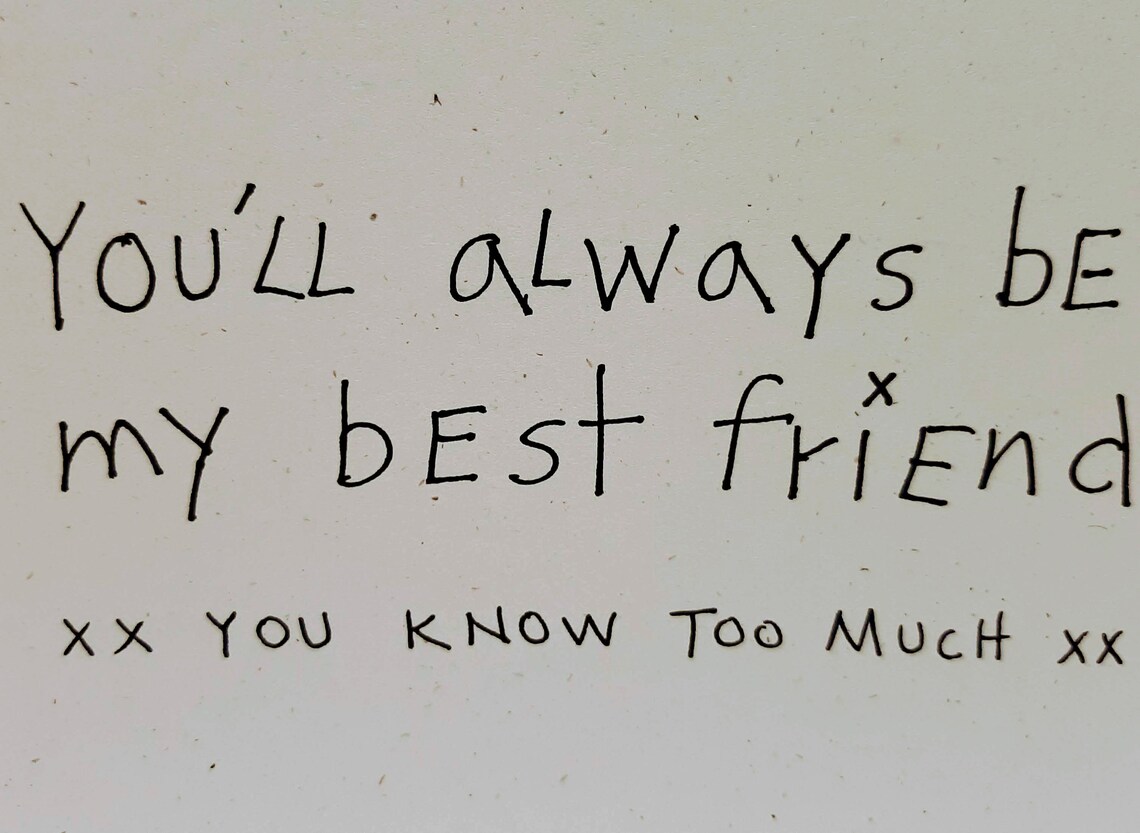 You'LL aLways bE
my bEst friEnd
xx YOU KNOW TOO MUCH xx